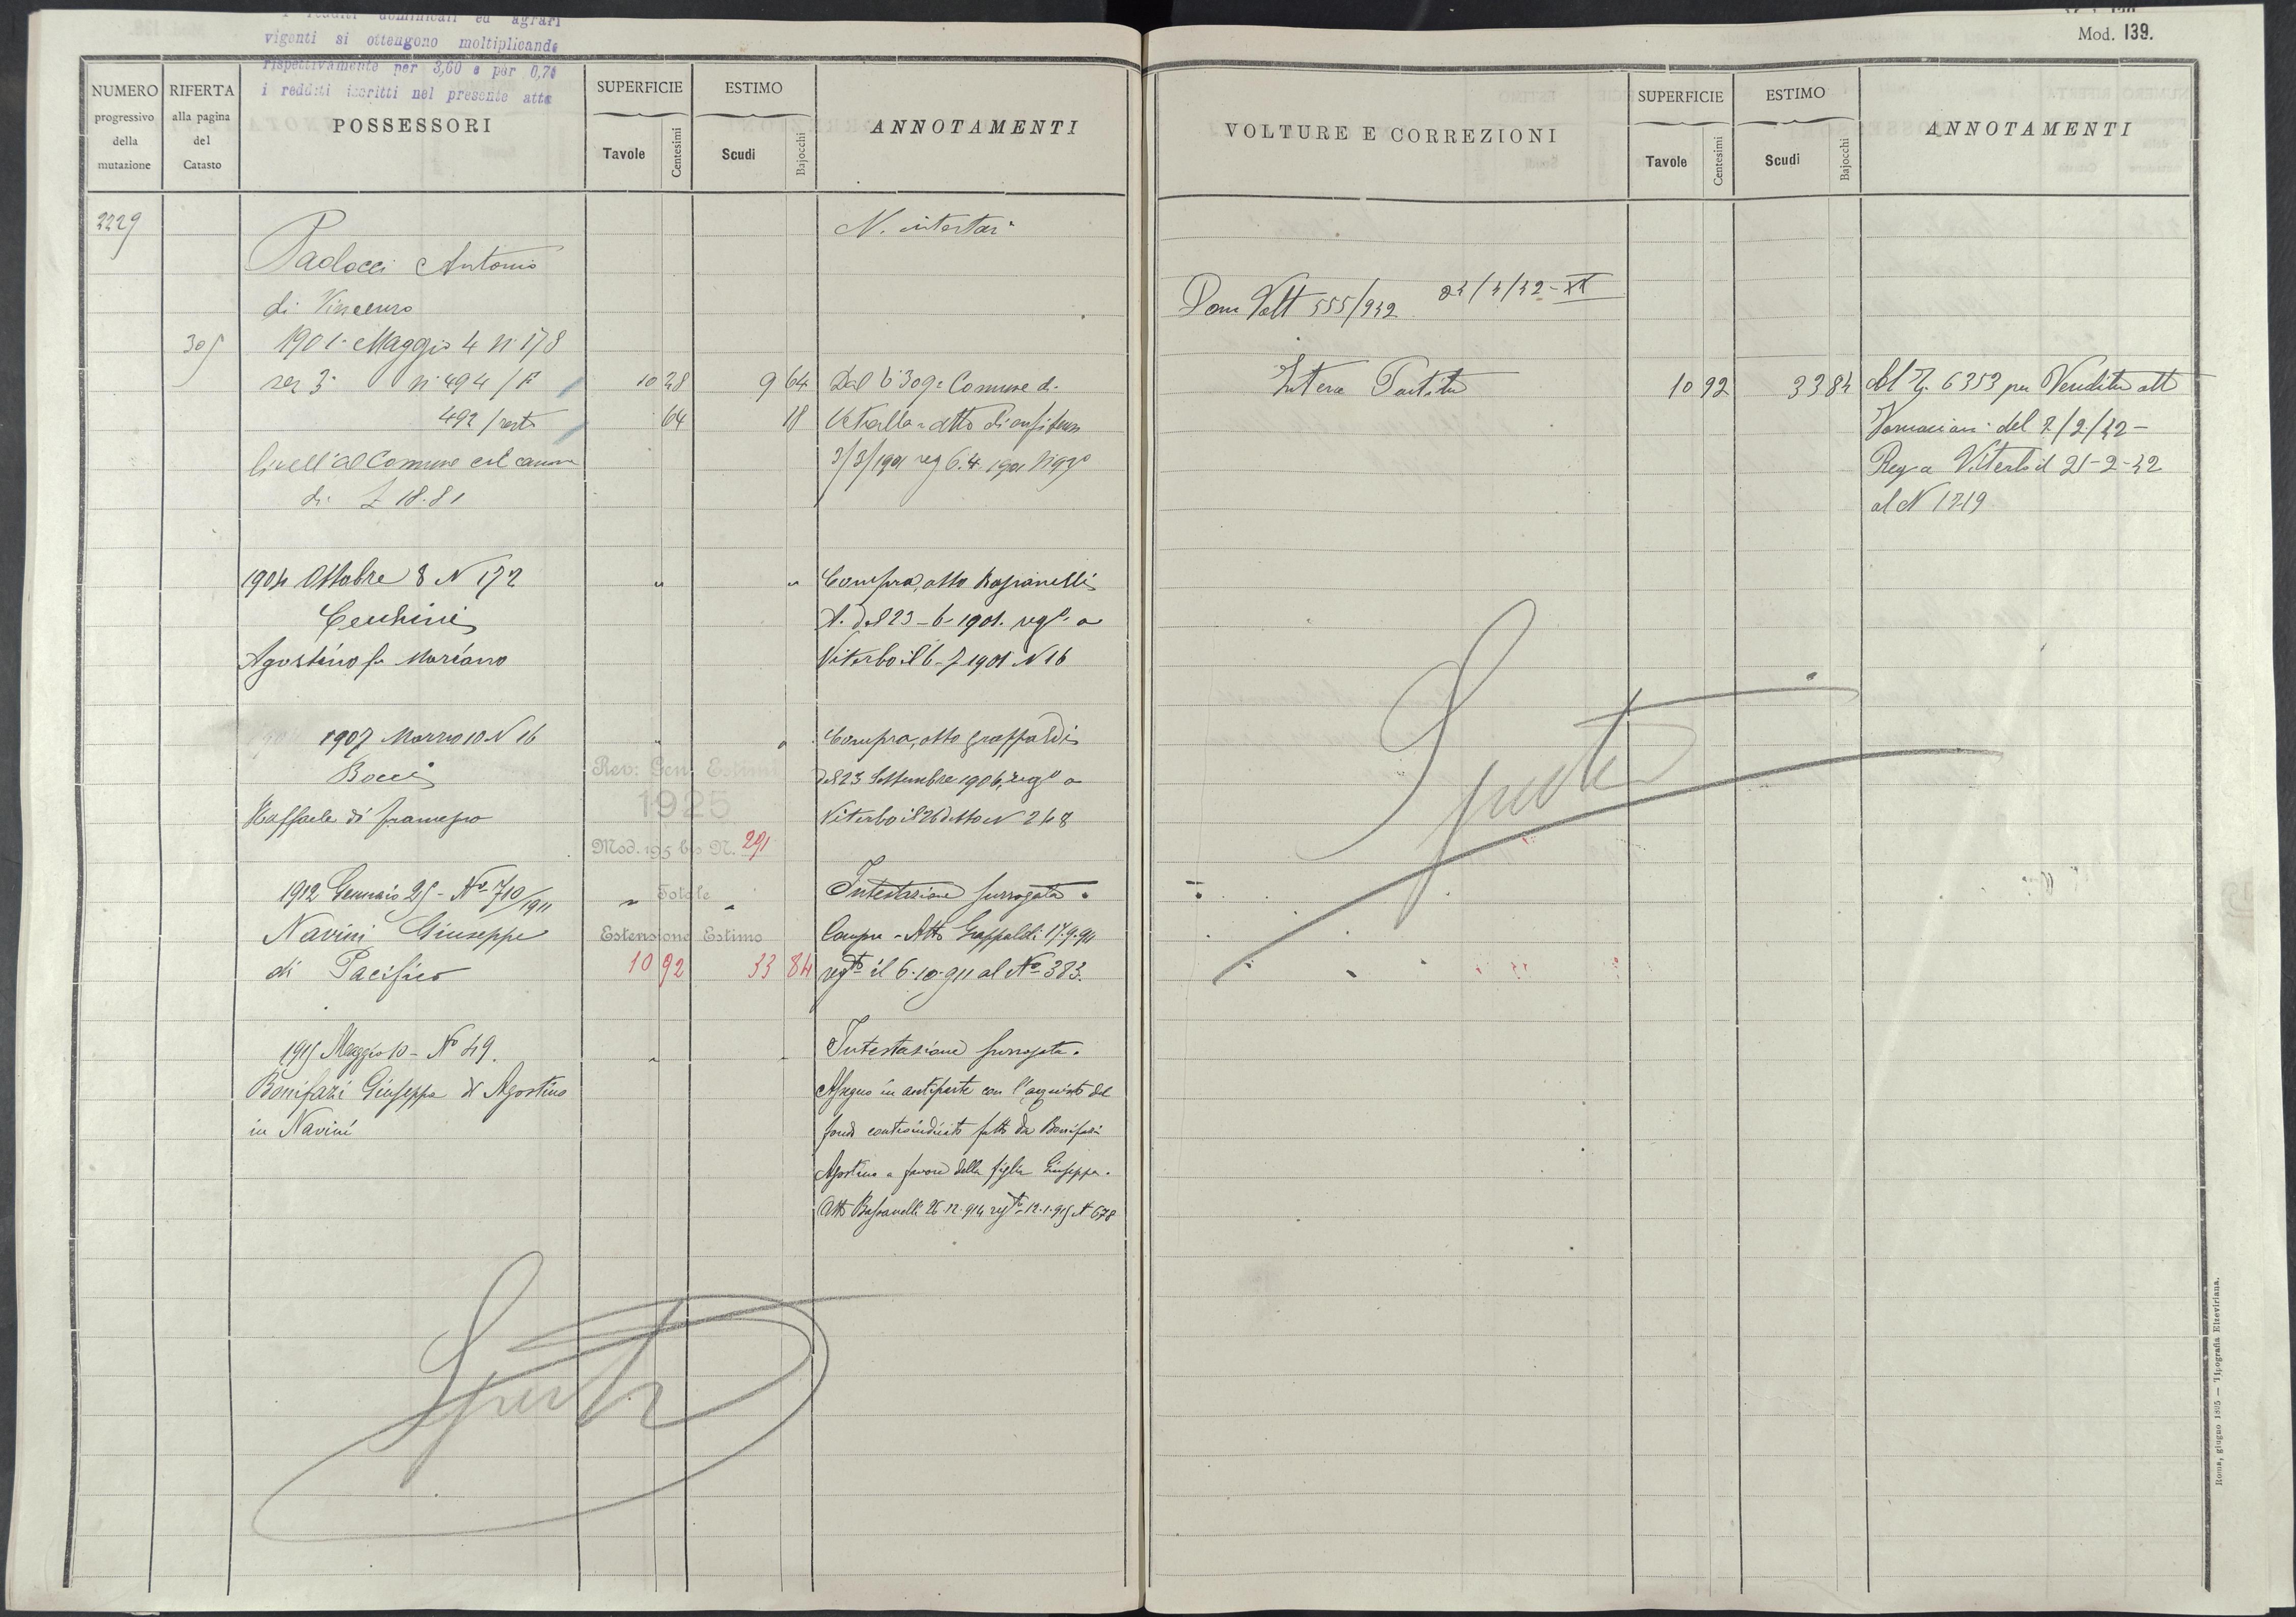 vigenti si ottengono moltiplicando
rispettivamente per 3,60 e per 0,75
i redditi iscritti nel presente atto
NUMERO
progressivo
della
mutazione
RIFERTA
alla pagina
del
Catasto
POSSESSORI
SUPERFICIE
Tavole
Centesimi
ESTIMO
Scudi
Bajocchi
ANNOTAMENTI
2229
N. intestari
Paolocci Antonio
di Vincenzo
305
1901 Maggio 4 N. 178
sez 3ª n. 494/F
10 28
9 64
Dal 6309 Comune di
492/resto
64
18
Vetralla atto di enfiteusi
livell. al Comune col canone
3/3/1901 reg 6.4.1901
di £ 18.81
1904 Ottobre 8 N 172
"
"
Compra, atto Bassanelli
Cecchini
A. del 23-6-1901. regto a
Agostino fu Mariano
Viterbo il 6-7-1901 N 16
1907 Marzo 10 N 16
"
"
Compra, atto Grappaldi
Bocci
Rev: Gen. Estimi
del 23 Settembre 1906, regto a
1925
Raffaele di Francesco
Viterbo il 26 detto N 248
Mod. 195 bis N. 291
1912 Gennaio 25 - No 710/1911
"
Totale
"
Intestazione surrogata.
Navini Giuseppe
Estensione Estimo
Compra - Atto Grappaldi 17.9.911
di Pacifico
10 92
33 84
regto il 6.10.911 al No 383.
1915 Maggio 10 - No 49.
"
"
Intestazione surrogata.
Bonifazi Giuseppa di Agostino
Assegno in antiparte con l'acquisto del
in Navini
fondo controindicato fatto da Bonifazi
Agostino a favore della figlia Giuseppa.
Atto Bassanelli 26.12.914 regto 12.1.915 N 678
Spenta
Mod. 139.
VOLTURE E CORREZIONI
SUPERFICIE
Tavole
Centesimi
ESTIMO
Scudi
Bajocchi
ANNOTAMENTI
Dom Volt 555/942
Intera Partita
10 92
33 84
Al 6353 per Vendita att
del 2/2/42 -
Reg a Viterbo il 21-2-42
al N 1219
Spenta
Roma, giugno 1895 — Tipografia Elzeviriana.